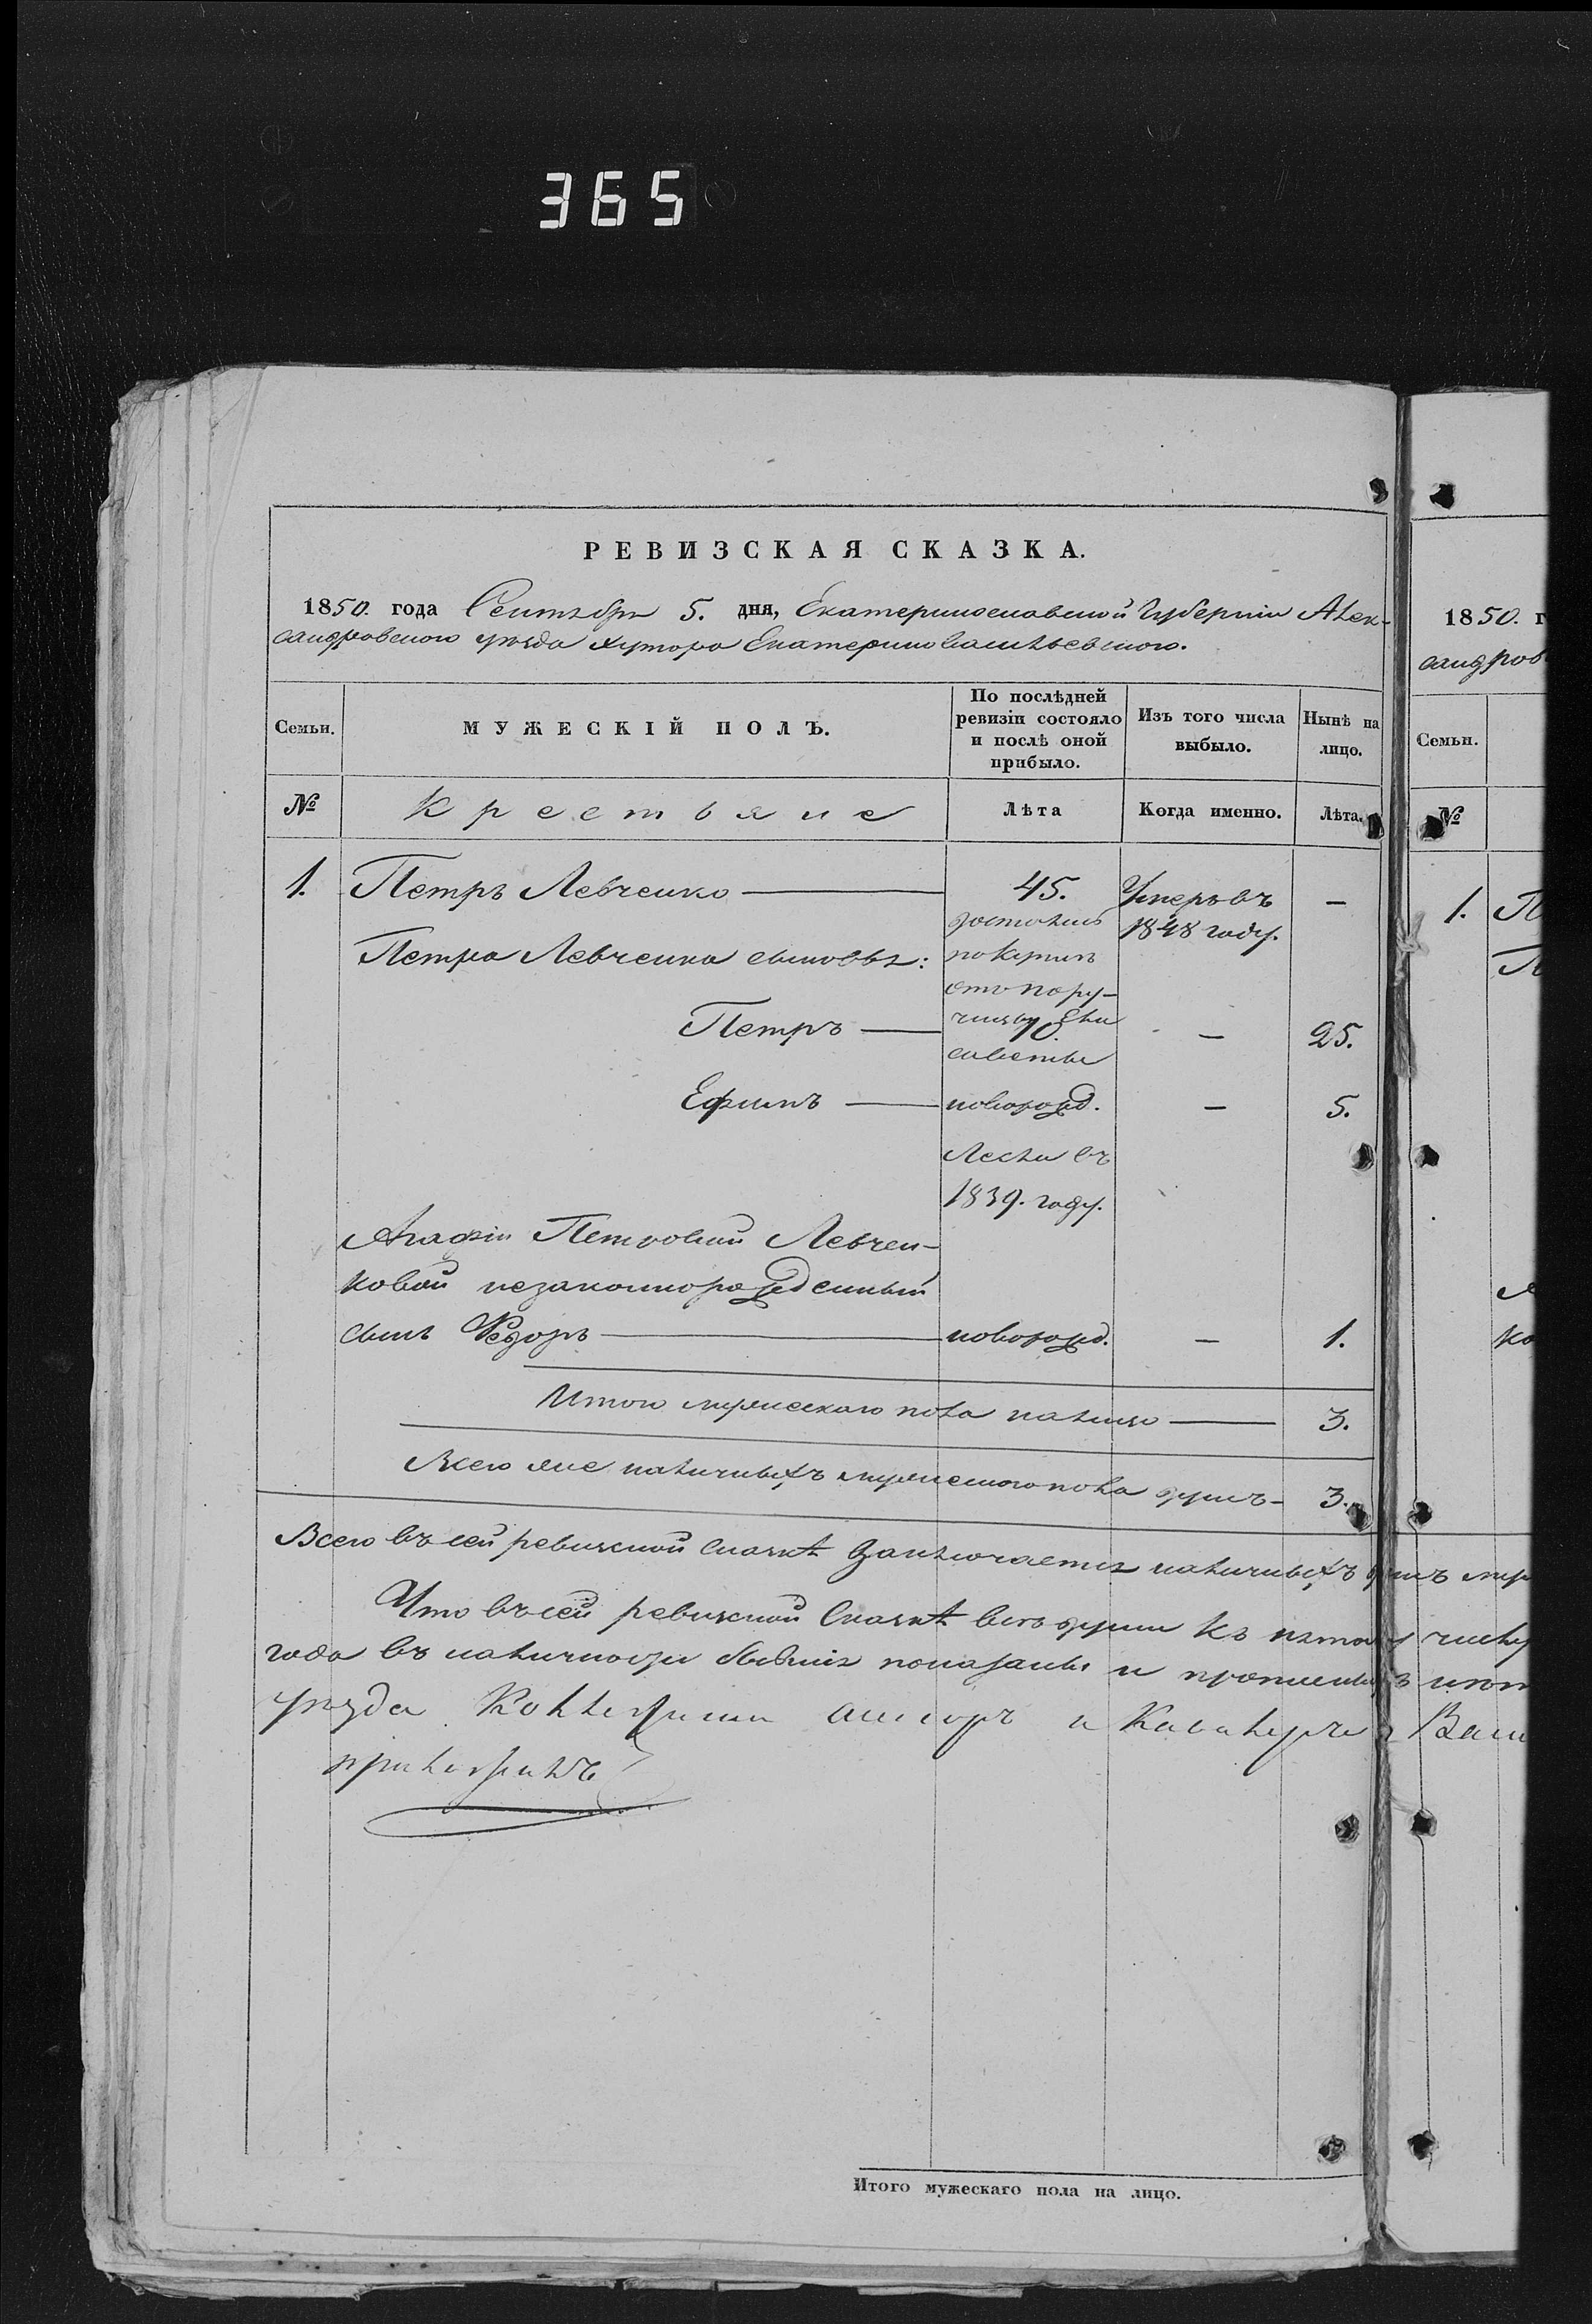 365
РЕВИЗСКАЯ СКАЗКА.
1850. года Сентября 5. дня, Екатеринославской Губерніи Алек-
сандровского уѣзда хутора Екатериновасильевского.
Семьи.
МУЖЕСКІЙ ПОЛЪ.
По послѣдней ревизіи состояло и послѣ оной прибыло.
Изъ того числа выбыло.
Нынѣ на лицо.
№ Крестьяне Лѣта Когда именно. Лѣта.
1. Петръ Левченко — 45. Умеръ въ 1848 году. —
Петра Левченка сыновья:
достались
по купли
отъ пору-
Петръ — 10. — 25.
Ефимъ — новорожд. — 5.
въ
1839. году.
Агафіи Петровой Левчен-
ковой незаконнорожденный
сынъ Федоръ — новорожд. — 1.
Итого мужескаго пола налицо — 3.
Всего же наличныхъ мужеского пола душъ - 3.
Всего въ сей ревизской сказкѣ заключается наличныхъ душъ муж
Что въ сей ревизской сказкѣ всѣ души къ пятому числу
года въ наличности бывшія показаны и прописныхъ
уѣзда Коллежскій Асесоръ и Кавалеръ Васи
приложилъ
Итого мужескаго пола на лицо.
1850. г
сандров
Семьи.
№
1. П
П
ко